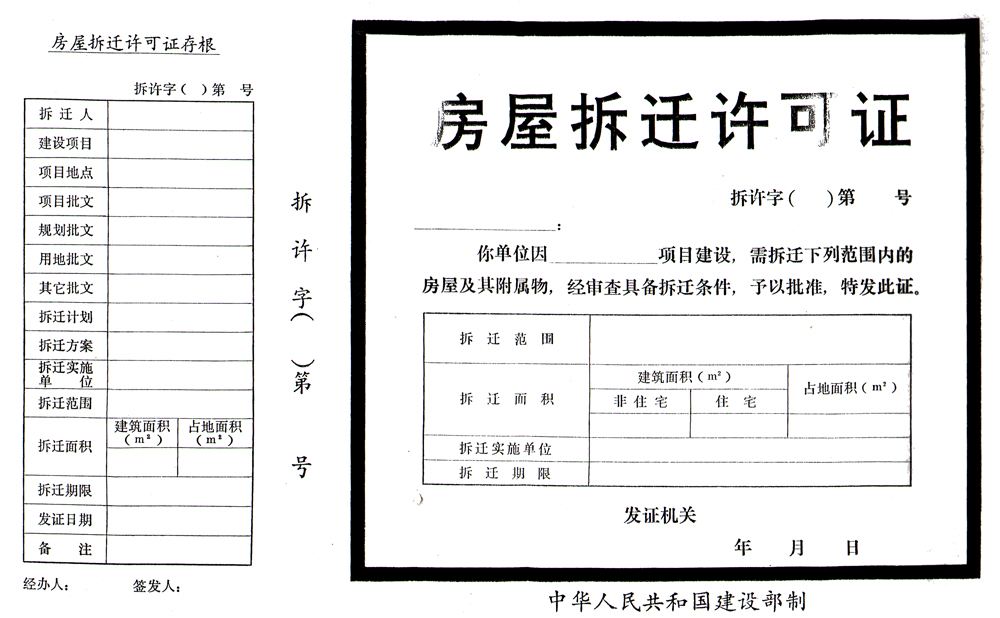 房屋拆迁许可证存根
拆许字( )第 号
拆迁人
建设项目
项目地点
项目批文
规划批文
用地批文
其它批文
拆迁计划
拆迁方案
拆迁实施
单 位
拆迁范围
拆迁面积
建筑面积
(m²)
占地面积
(m²)
拆迁期限
发证日期
备 注
经办人:
签发人:
拆许字( )第 号
房屋拆迁许可证
拆许字( )第 号
:
你单位因 项目建设,需拆迁下列范围内的
房屋及其附属物,经审查具备拆迁条件,予以批准,特发此证。
拆迁范围
拆迁面积
建筑面积(m²)
非住宅
住宅
占地面积(m²)
拆迁实施单位
拆迁期限
发证机关
年 月 日
中华人民共和国建设部制